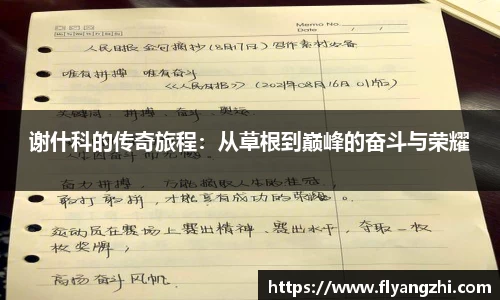 Memo No.
Date / /
人民日报 金句摘抄(8月17日) 写作素材必备
唯有拼搏 唯有奋斗
《人民日报》(2021年08月16日 01版)
关键词: 拼搏、奋斗、奥运
谢什科的传奇旅程：从草根到巅峰的奋斗与荣耀
奋力拼搏, 方能摘取人生的桂冠,
敢打敢拼, 才能享有成功的荣耀。
运动员在赛场上赛出精神、赛出水平, 夺取一枚
枚奖牌,
高扬奋斗风帆,
https://www.flyangzhi.com